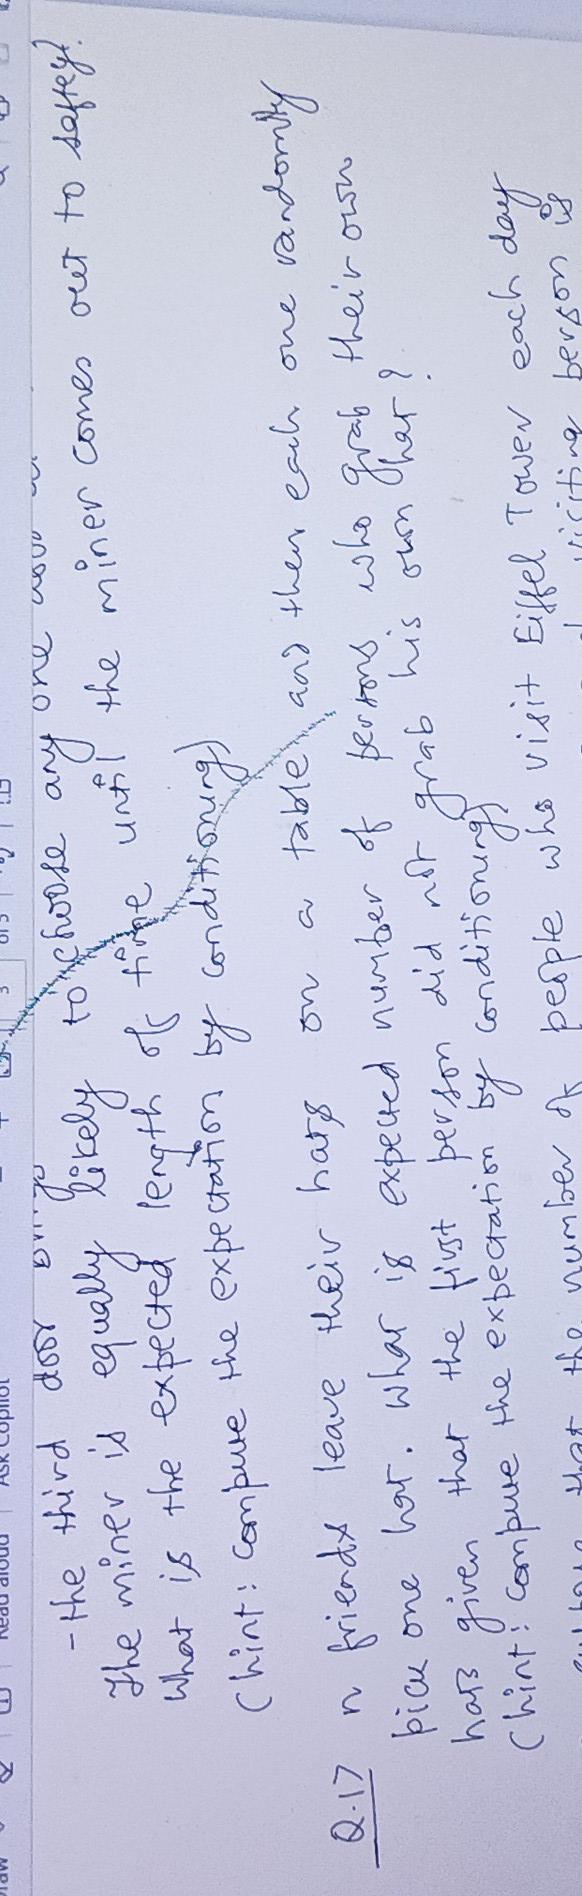 Read aloud | Ask Copilot
- the third door
The miner is equally likely to choose any one
What is the expected length of time until the miner comes out to saftey?
(hint: compute the expectation by conditioning)
Q.17 n friends leave their hats on a table and then each one randomly
pick one hat. What is expected number of persons who grab their own
hats given that the first person did not grab his own hat?
(hint: compute the expectation by conditioning)
that the number of people who visit Eiffel Tower each day
visiting person is